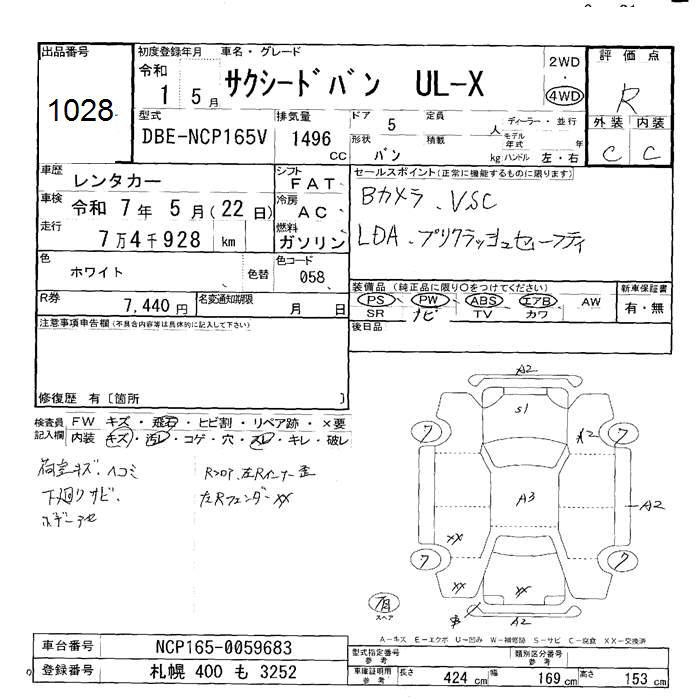 出品番号
1028
初度登録年月
令和
1 5月
車名・グレード
サクシードバン UL-X
2WD
・
4WD
評価点
R
外装 内装
C C
型式
DBE-NCP165V
排気量
1496
CC
ドア 5 定員 人
形状 バン 積載 kg
ディーラー・並行
モデル年式 年
ハンドル 左・右
車歴
レンタカー
シフト
FAT
車検
令和 7年 5月(22日)
冷房
AC
走行
7万4千928 km
燃料
ガソリン
色
ホワイト
色替
色コード
058
R券
7,440円
名変通知期限
月 日
セールスポイント(正常に機能するものに限ります)
Bカメラ、VSC
LDA、プリクラッシュセーフティ
装備品 (純正品に限り○をつけてください)
PS PW ABS エアB AW
SR ナビ TV カワ
新車保証書
有・無
後日品
注意事項申告欄(不具合内容等は具体的に記入して下さい)
修復歴 有〔箇所 〕
検査員
記入欄
FW キズ・飛石・ヒビ割・リペア跡・×要
内装 キズ・汚レ・コゲ・穴・スレ・キレ・破レ
荷室キズ、ヘコミ
下廻りサビ、
Rフロア、左Rインナー歪
左Rフェンダーxx
A2
S1
7
A2
7
A3
A2
xx
7
7
xx
xx
A2
有
スペア
A-キズ E-エクボ U-凹み W-補修跡 S-サビ C-腐食 XX-交換済
車台番号
NCP165-0059683
登録番号
札幌 400 も 3252
型式指定番号
参考
類別区分番号
参考
車庫証明用
参考
長さ 424 cm 幅 169 cm 高さ 153 cm